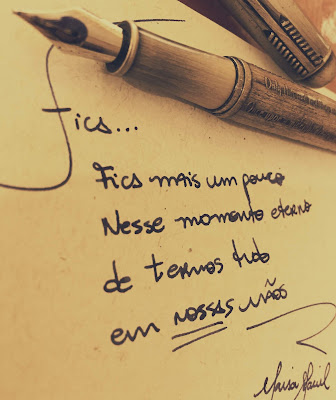 Fica...
Fica mais um pouco
Nesse momento eterno
de termos tudo
em nossas mãos